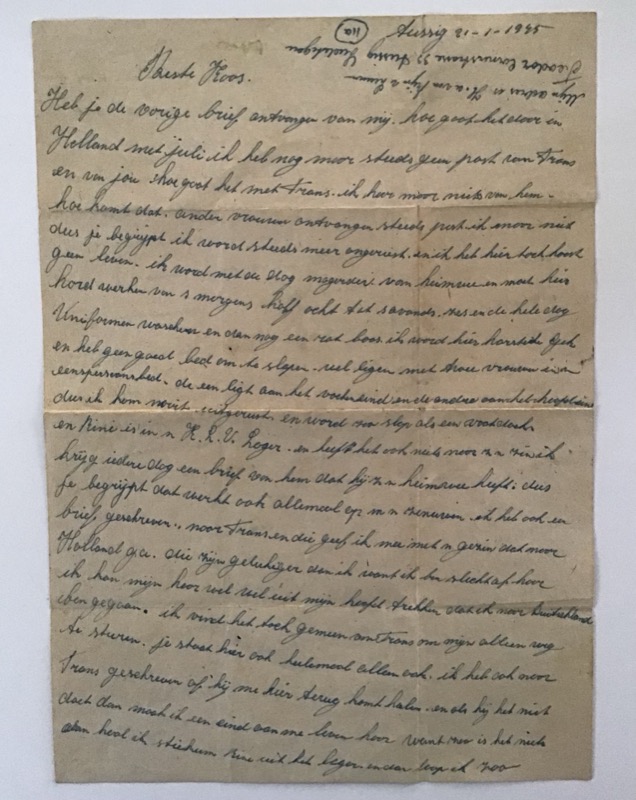 11a
Aussig 12-1-1945
Theodor Körnerstrasse 33 Aussig Sudetengau
Mijn adres is
Beste Koos.
Heb je de vorige brief ontvangen van mij. hoe gaat het daar in
Holland met juli. ik heb nog maar steeds geen post van Frans
en van jou. hoe gaat het met Frans. ik hoor maar niets van hem.
hoe komt dat. ander vrouwen ontvangen steeds post. ik maar niet
dus je begrijpt ik word steeds meer ongerust. en ik heb hier toch haast
geen leven. ik word met de dag magerder van heimwee en moet hier
hard werken van s morgens half acht tot savonds. zes en de hele dag
Uniformen wasschen en dan nog een rot baas ik word hier hartstik gek
en heb geen goed bed om te slapen. wel ligen met twee vrouwen in 1
eenspersoonsbed. de een ligt aan het voeteneind en de andre aan het hoofdeind
dus ik kom nooit uitgerust. en word zoo slap als een vaatdoek.
en Rini is in n K.L.V. Lager. en heeft het ook niets naar z n zin ik
krijg iedere dag een brief van hem dat hij z n heimwee heeft. dus
je begrijpt dat werkt ook allemaal op m n zenuwen. ik heb ook een
brief geschreven. naar Frans en die geef ik mee met n gezin dat naar
Holland ga. die zijn gelukiger dan ik want ik ben slecht af hoor
ik kan mijn haar wel wel uit mijn hoofd trekken dat ik naar Duitschland
ben gegaan. ik vind het toch gemeen van Frans om mijn alleen weg
te sturen. je staat hier ook helemaal allen ook. ik heb ook naar
Frans geschreven of hij me hier terug komt halen. en als hij het niet
doet dan maak ik een eind aan me leven hoor want zoo is het niets
dan haal ik stiekum Rini uit het lager en dan loop ik zoo